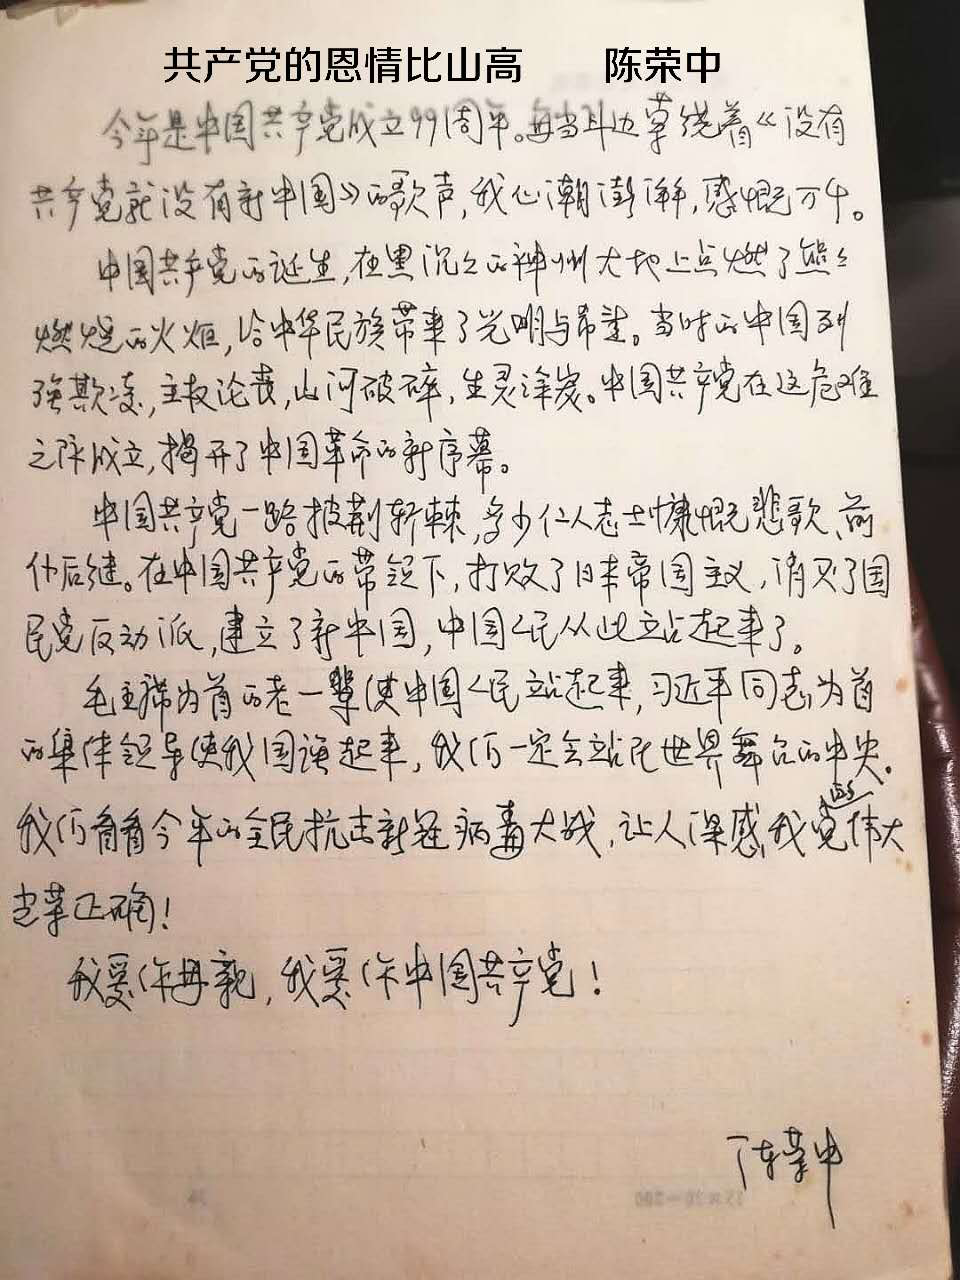 共产党的恩情比山高 陈荣中
今年是中国共产党成立99周年。每当耳边萦绕着《没有
共产党就没有新中国》的歌声,我心潮澎湃,感慨万千。
中国共产党的诞生,在黑沉沉的神州大地上点燃了熊熊
燃烧的火炬,给中华民族带来了光明与希望。当时的中国列
强欺凌,主权沦丧,山河破碎,生灵涂炭。中国共产党在这危难
之际成立,揭开了中国革命的新序幕。
中国共产党一路披荆斩棘,多少仁人志士慷慨悲歌、前
仆后继。在中国共产党的带领下,打败了日本帝国主义,消灭了国
民党反动派,建立了新中国,中国人民从此站起来了。
毛主席为首的老一辈使中国人民站起来,习近平同志为首
的集体领导使我国强起来,我们一定会站在世界舞台的中央。
我们看看今年的全民抗击新冠病毒大战,让人深感我党的伟大
光荣正确!
我爱你母亲,我爱你中国共产党!
陈荣中
15×20=300